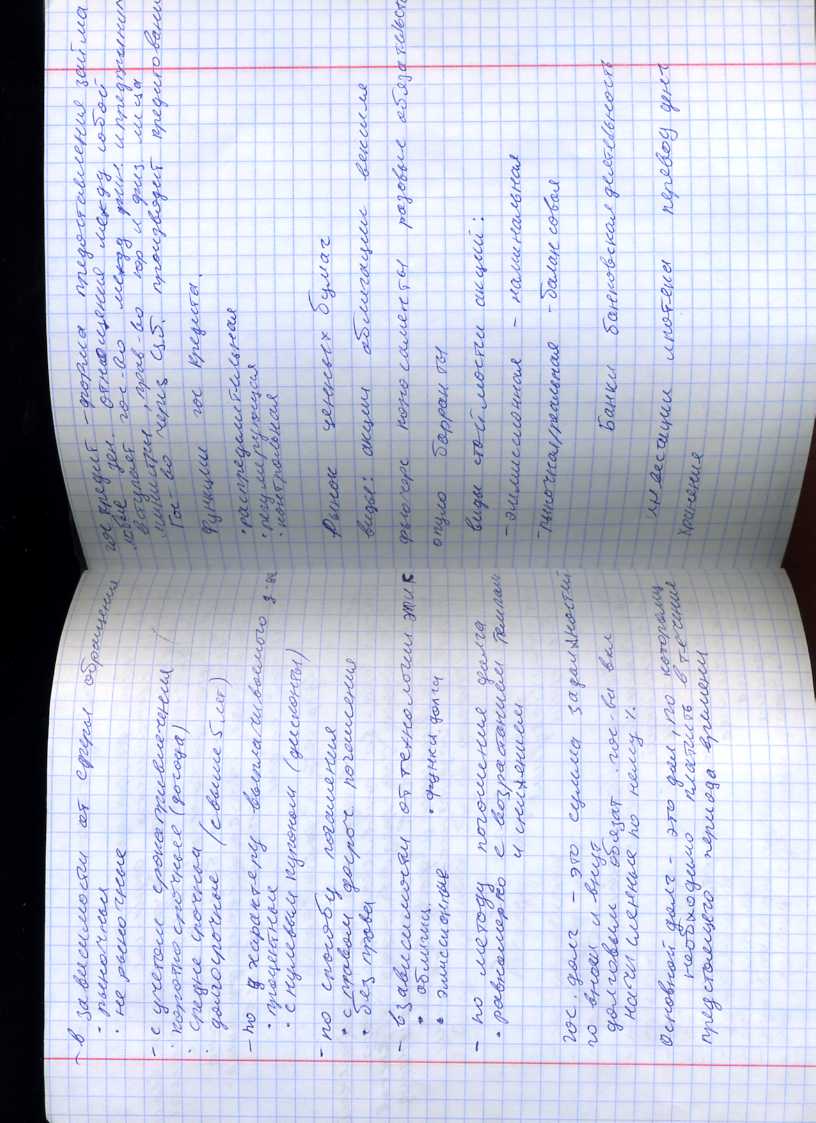 - в зависимости от сферы обращения
• рыночный
• не рыночные
- с учетом срока привлечения
• коротко срочные (дохода)
• средне срочный
• долгосрочные (свыше 5 лет)
- по характеру выплачиваемого
• процентные
• с нулевым купоном (дисконты)
- по способу погашения
• с правом досроч погашения
• без права
- в зависимости от технологии
• облигац.
• эмиссионные
- по методу погашения долга
• равномерно с возрастанием
и снижением
гос. долг - это сумма задолжностей
по внеш и внут
долговым обязат гос-ва вкл
начисленные по нему %.
Основной долг - это долг, по которому
необходимо платить в течение
предстоящего периода времени
гос кредит - форма предоставления займа
любые отношения между собой
вступает гос-во между
министры, прав-во юр и физ лица
Гос-во через Ц.Б. производит
функции гос кредита.
• распределительная
• регулирующая
• контрольная
Рынок ценных бумаг
виды: акции облигации векселя
фьючерс коносаменты разовые
опцио варранты
виды стоймости акций:
- эмиссионная - наминальная
- рыночная/реальная - балансовая
Банки банковская деятельность
инвестиции ипотека перевод денг
хранение